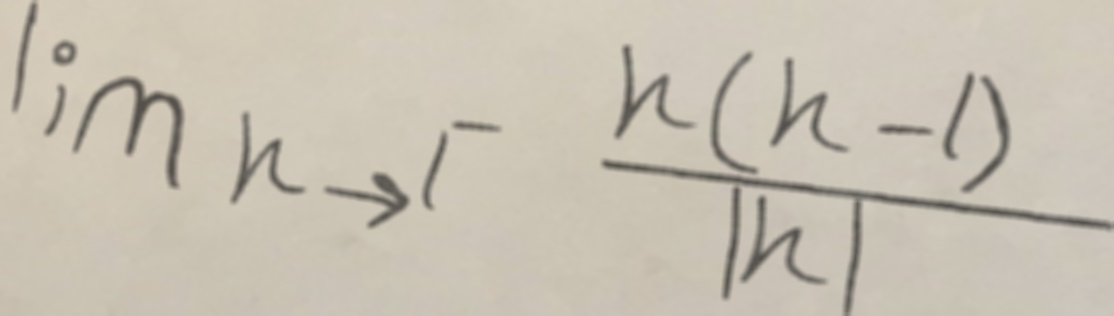 lim h→1⁻ h(h-1)/|h|